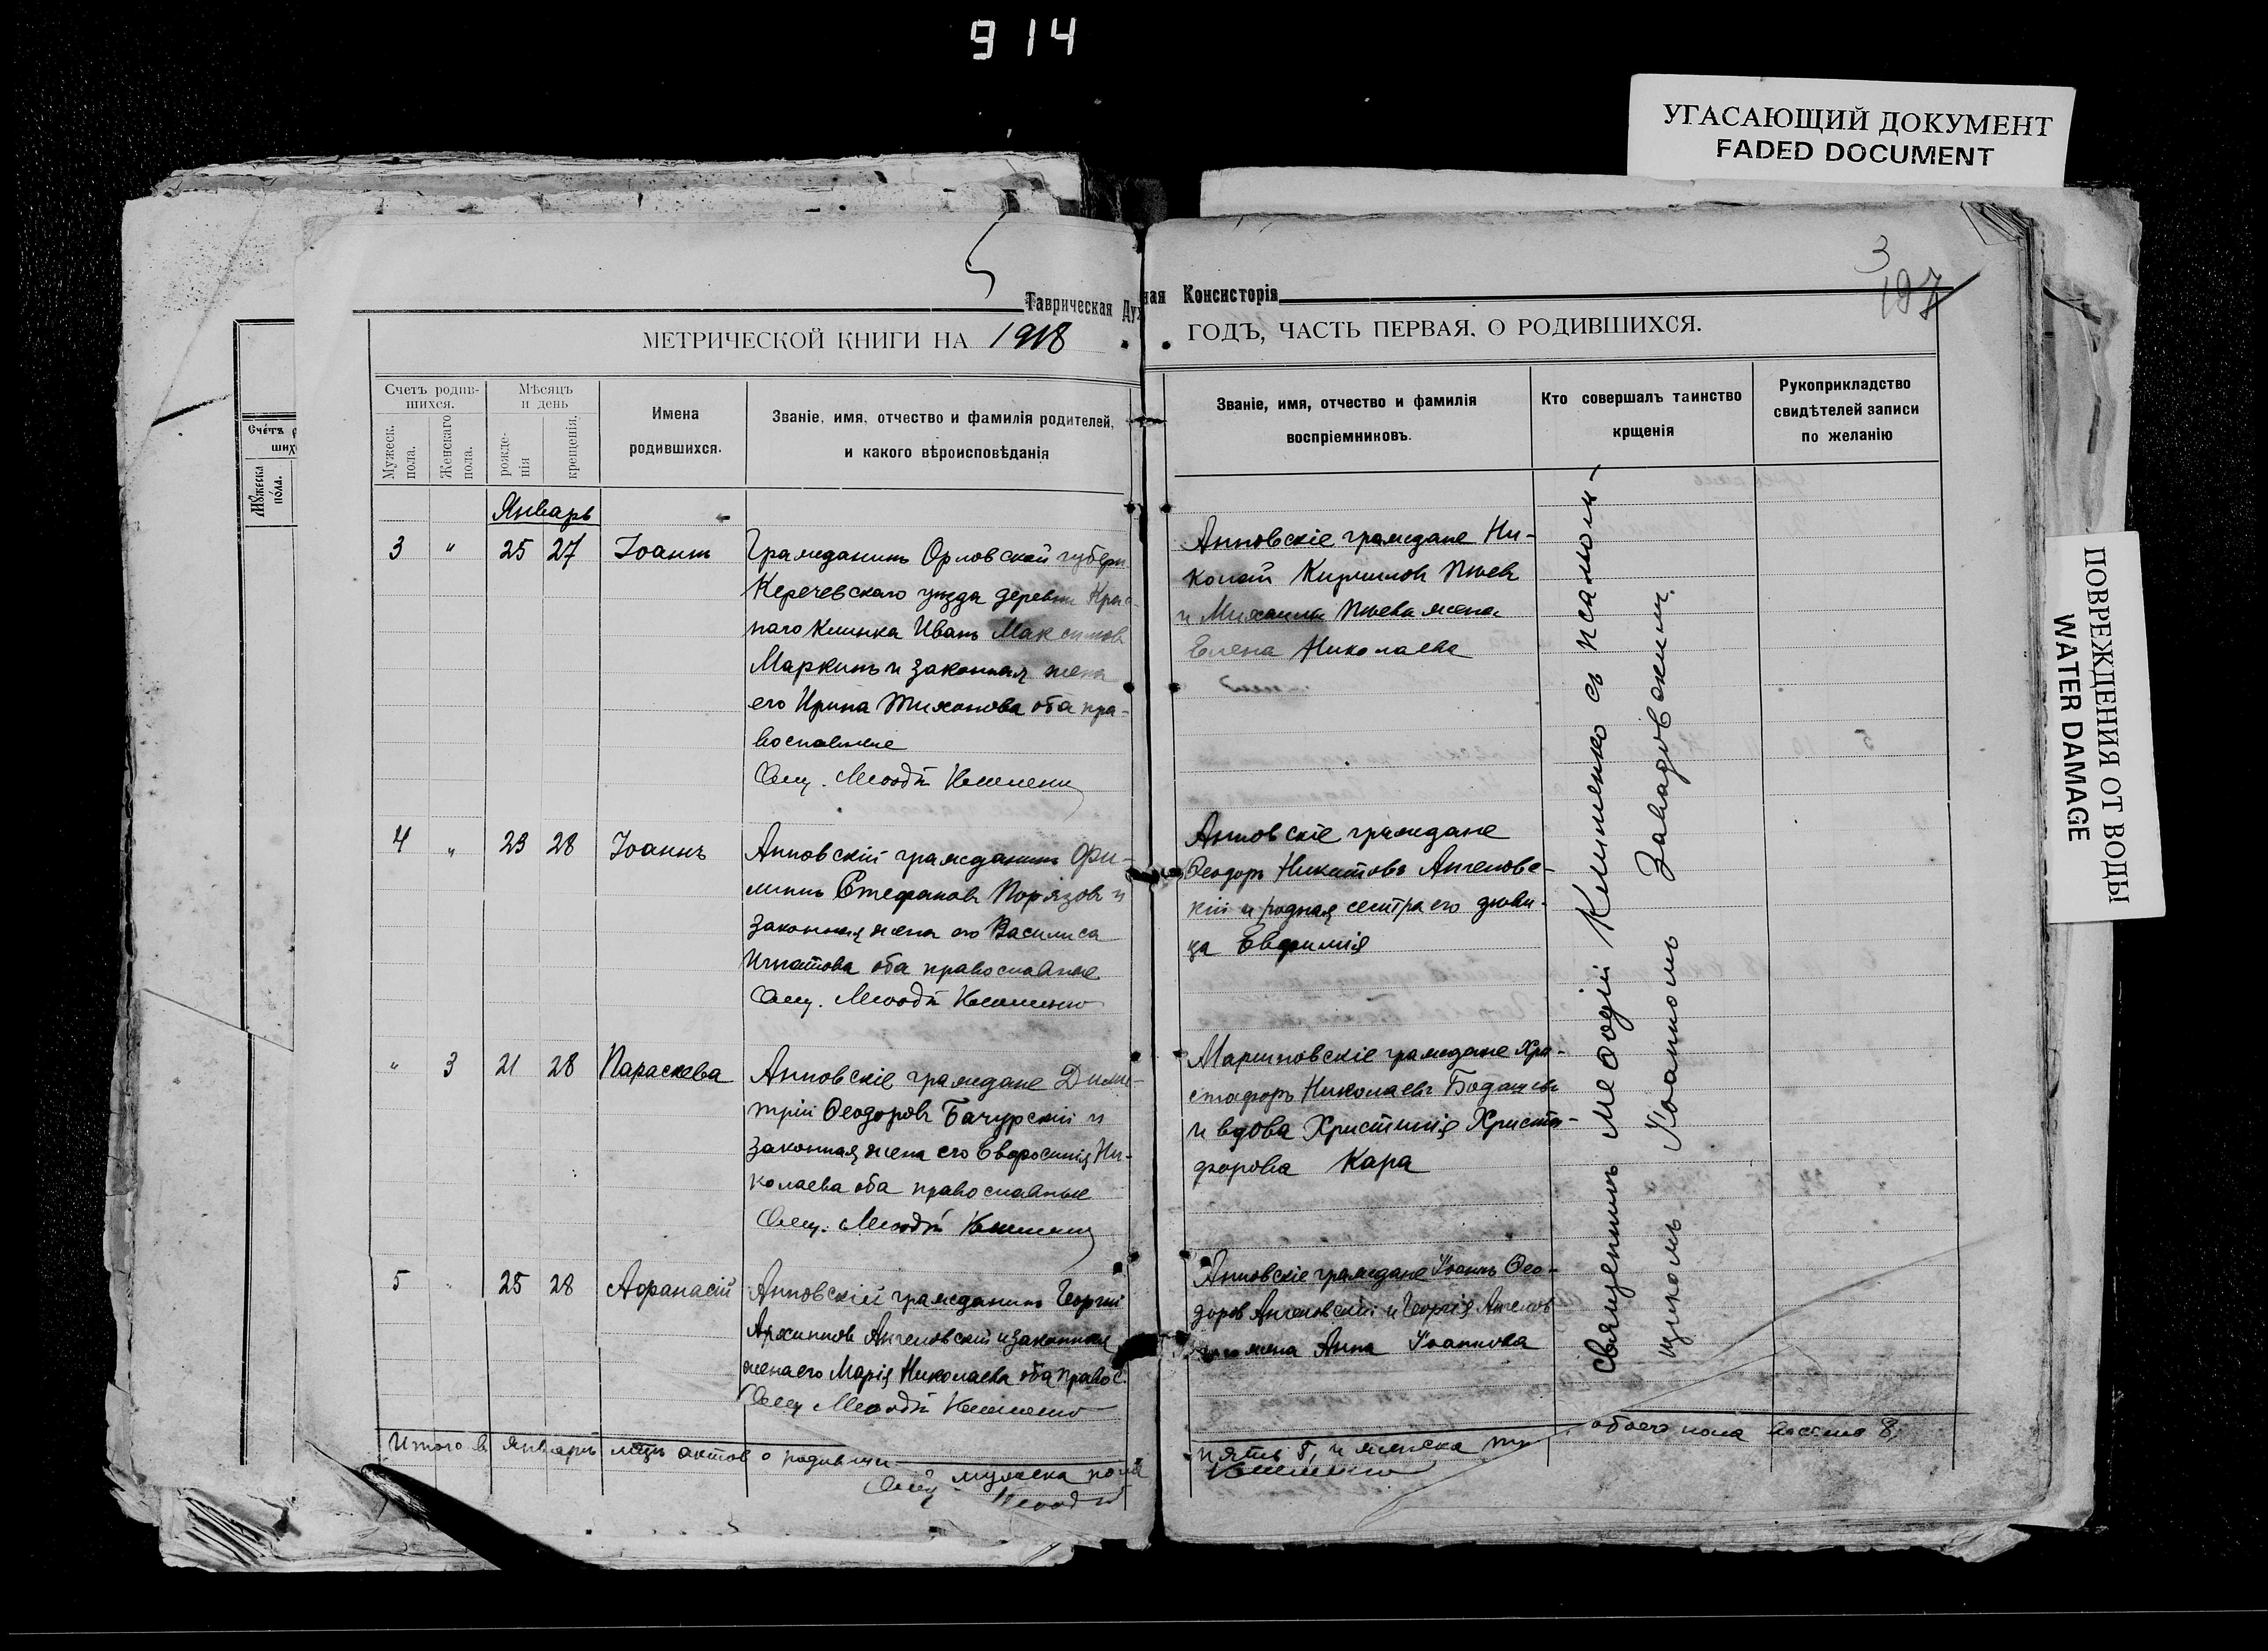 914
УГАСАЮЩИЙ ДОКУМЕНТ
FADED DOCUMENT
ПОВРЕЖДЕНИЯ ОТ ВОДЫ
WATER DAMAGE
5
3
197
Таврическая Дух
ная Консисторія
МЕТРИЧЕСКОЙ КНИГИ НА 1918
ГОДЪ, ЧАСТЬ ПЕРВАЯ. О РОДИВШИХСЯ.
Счетъ родив-
шихся.
Мужеск. пола.
Женскаго пола.
Мѣсяцъ
и день
рожде-
нія
крещенія.
Имена
родившихся.
Званіе, имя, отчество и фамилія родителей,
и какого вѣроисповѣданія
Званіе, имя, отчество и фамилія
воспріемниковъ.
Кто совершалъ таинство
крщенія
Рукоприкладство
свидѣтелей записи
по желанію
Январь
3 " 25 27 Іоаннъ
Гражданинъ Орловской губерн
уѣзда деревни
Иванъ Максимовъ
Маркинъ и законная жена
его Ирина Тихонова оба пра-
вославные
Свящ. Меѳодій Клименко
Анновскіе граждане Ни-
колай Кирилловъ
и Михаила жена
Елена Николаева
4 " 23 28 Іоаннъ
Анновскій гражданинъ Фи-
липпъ Стефановъ Порязовъ и
законная жена его Василиса
Игнатова оба православные
Свящ. Меѳодій Клименко
Анновскіе граждане
Ѳеодоръ Никитовъ Ангеловс-
кій и родная сестра его дѣви-
ца Евфимія
" 3 21 28 Параскева
Анновскіе граждане Дими-
трій Ѳеодоровъ Бачурскій и
законная жена его Евфросинія Ни-
колаева оба православные
Свящ. Меѳодій Клименко
Мариновскіе граждане Хри-
стофоръ Николаевъ
и вдова Христинія Христо-
форова Кара
5 " 25 28 Афанасій
Анновскій гражданинъ Георгій
Архиповъ Ангеловскій и законная
жена его Марія Николаева оба правос.
Свящ Меѳодій Клименко
Анновскіе граждане Іоаннъ Ѳео-
доровъ Ангеловскій и Георгія Ангелов
жена Анна Іоаннова
Священникъ Меѳодій Клименко съ псаломщ-
щикомъ Іоанномъ Завадовскимъ.
Итого въ январѣ мцѣ актовъ о родивши
мужеска пола
пять 5, и женска три
обоего пола восемь 8,
Свящ. Меѳодій
Клименко